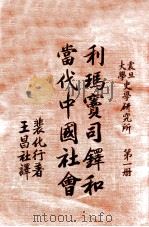 震旦大學史學研究所 第一冊
利瑪竇司鐸和
當代中國社會
裴化行著
王昌社譯
www.tushu007.com